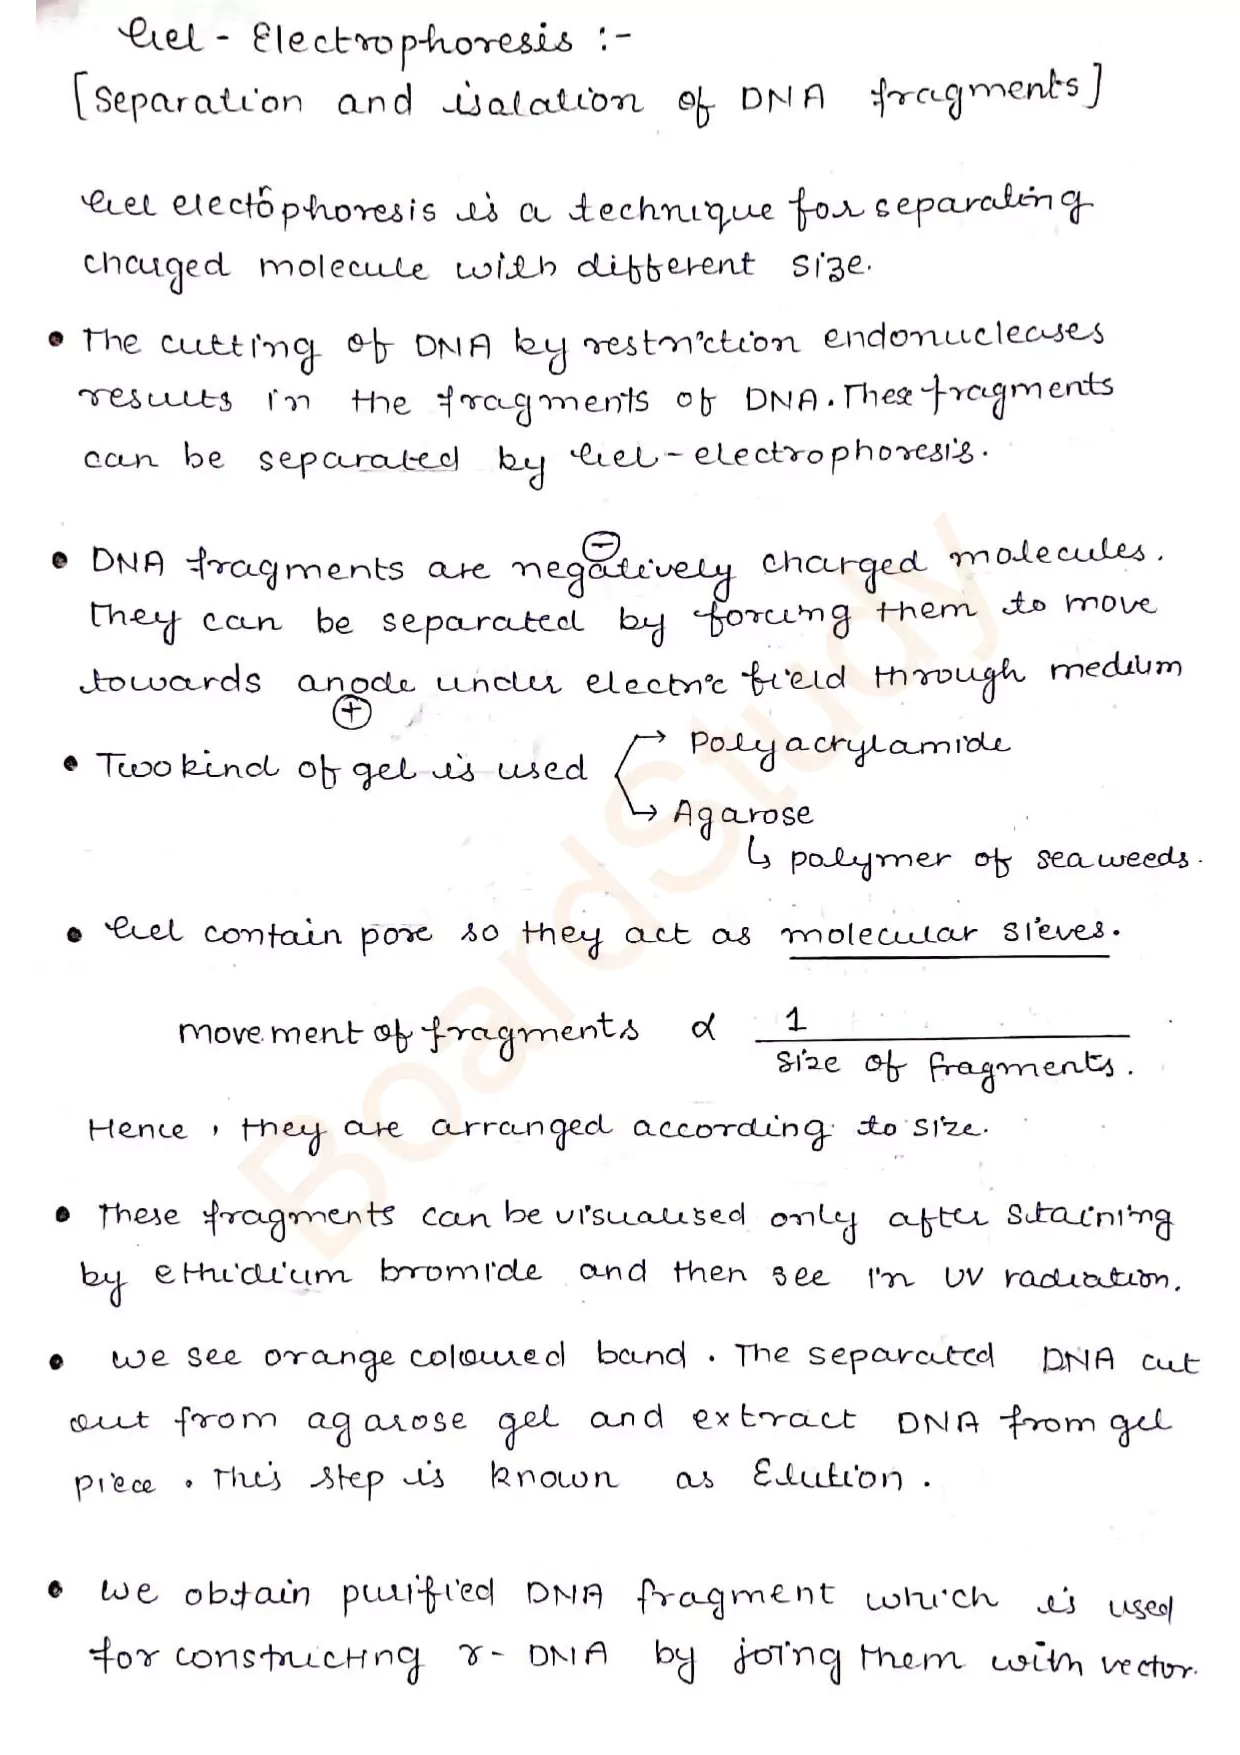 Gel - Electrophoresis :-
[Separation and isolation of DNA fragments]
Gel electrophoresis is a technique for separating
charged molecule with different size.
• The cutting of DNA by restriction endonucleases
results in the fragments of DNA. These fragments
can be separated by Gel-electrophoresis.
• DNA fragments are negatively charged molecules.
⊖
They can be separated by forcing them to move
towards anode under electric field through medium
⊕
• Two kind of gel is used → Polyacrylamide
→ Agarose
↳ polymer of sea weeds.
• Gel contain pore so they act as molecular sieves.
movement of fragments ∝ 1
size of fragments.
Hence, they are arranged according to size.
• These fragments can be visualised only after staining
by ethidium bromide and then see in UV radiation.
• we see orange coloured band. The separated DNA cut
out from agarose gel and extract DNA from gel
piece. This step is known as Elution.
• we obtain purified DNA fragment which is used
for constructing r-DNA by joing them with vector.
BoardStudy